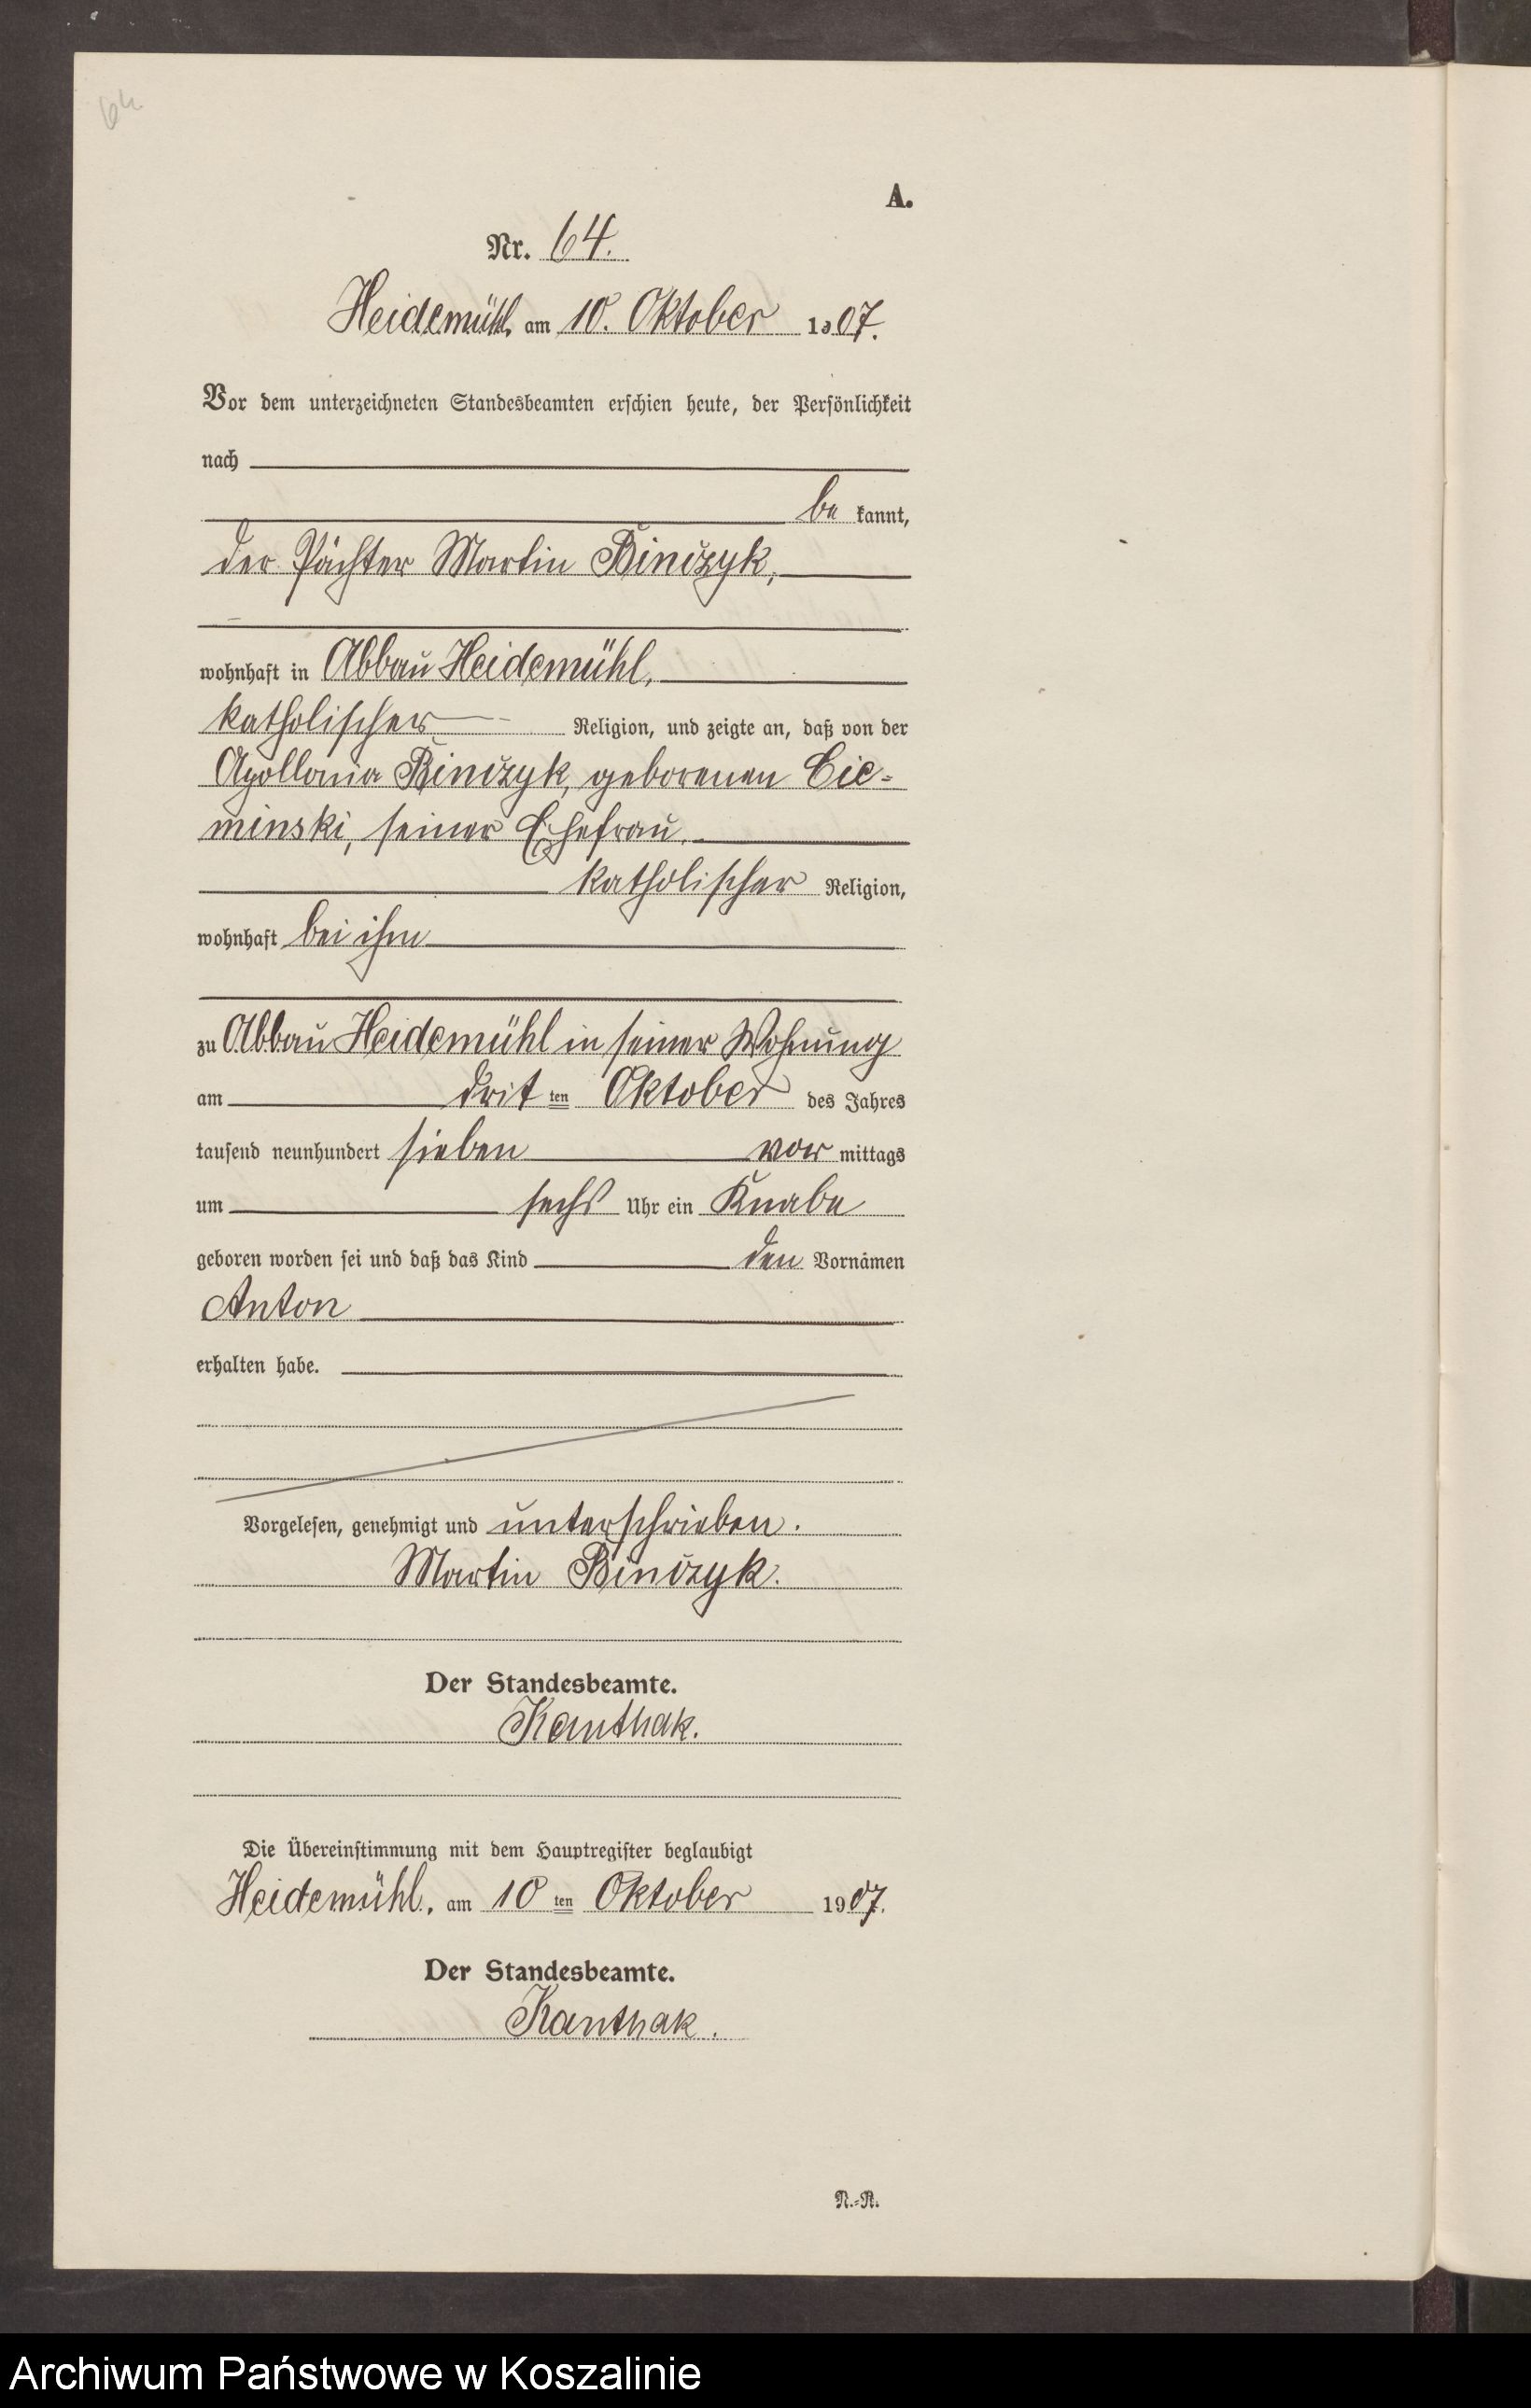 64
A.
Nr. 64.
Heidemühl, am 10. Oktober 1907.
Vor dem unterzeichneten Standesbeamten erschien heute, der Persönlichkeit
nach
be kannt,
der Pächter Martin Binczyk,
wohnhaft in Abbau Heidemühl,
katholischer Religion, und zeigte an, daß von der
Apollonia Binczyk, geborenen Cie=
minski, seiner Ehefrau,
katholischer Religion,
wohnhaft bei ihm
zu Abbau Heidemühl in seiner Wohnung
am drit ten Oktober des Jahres
tausend neunhundert sieben vor mittags
um sechs Uhr ein Knabe
geboren worden sei und daß das Kind den Vornamen
Anton
erhalten habe.
Vorgelesen, genehmigt und unterschrieben.
Martin Binczyk.
Der Standesbeamte.
Kanthak.
Die Übereinstimmung mit dem Hauptregister beglaubigt
Heidemühl, am 10 ten Oktober 1907.
Der Standesbeamte.
Kanthak.
N.=R.
Archiwum Państwowe w Koszalinie